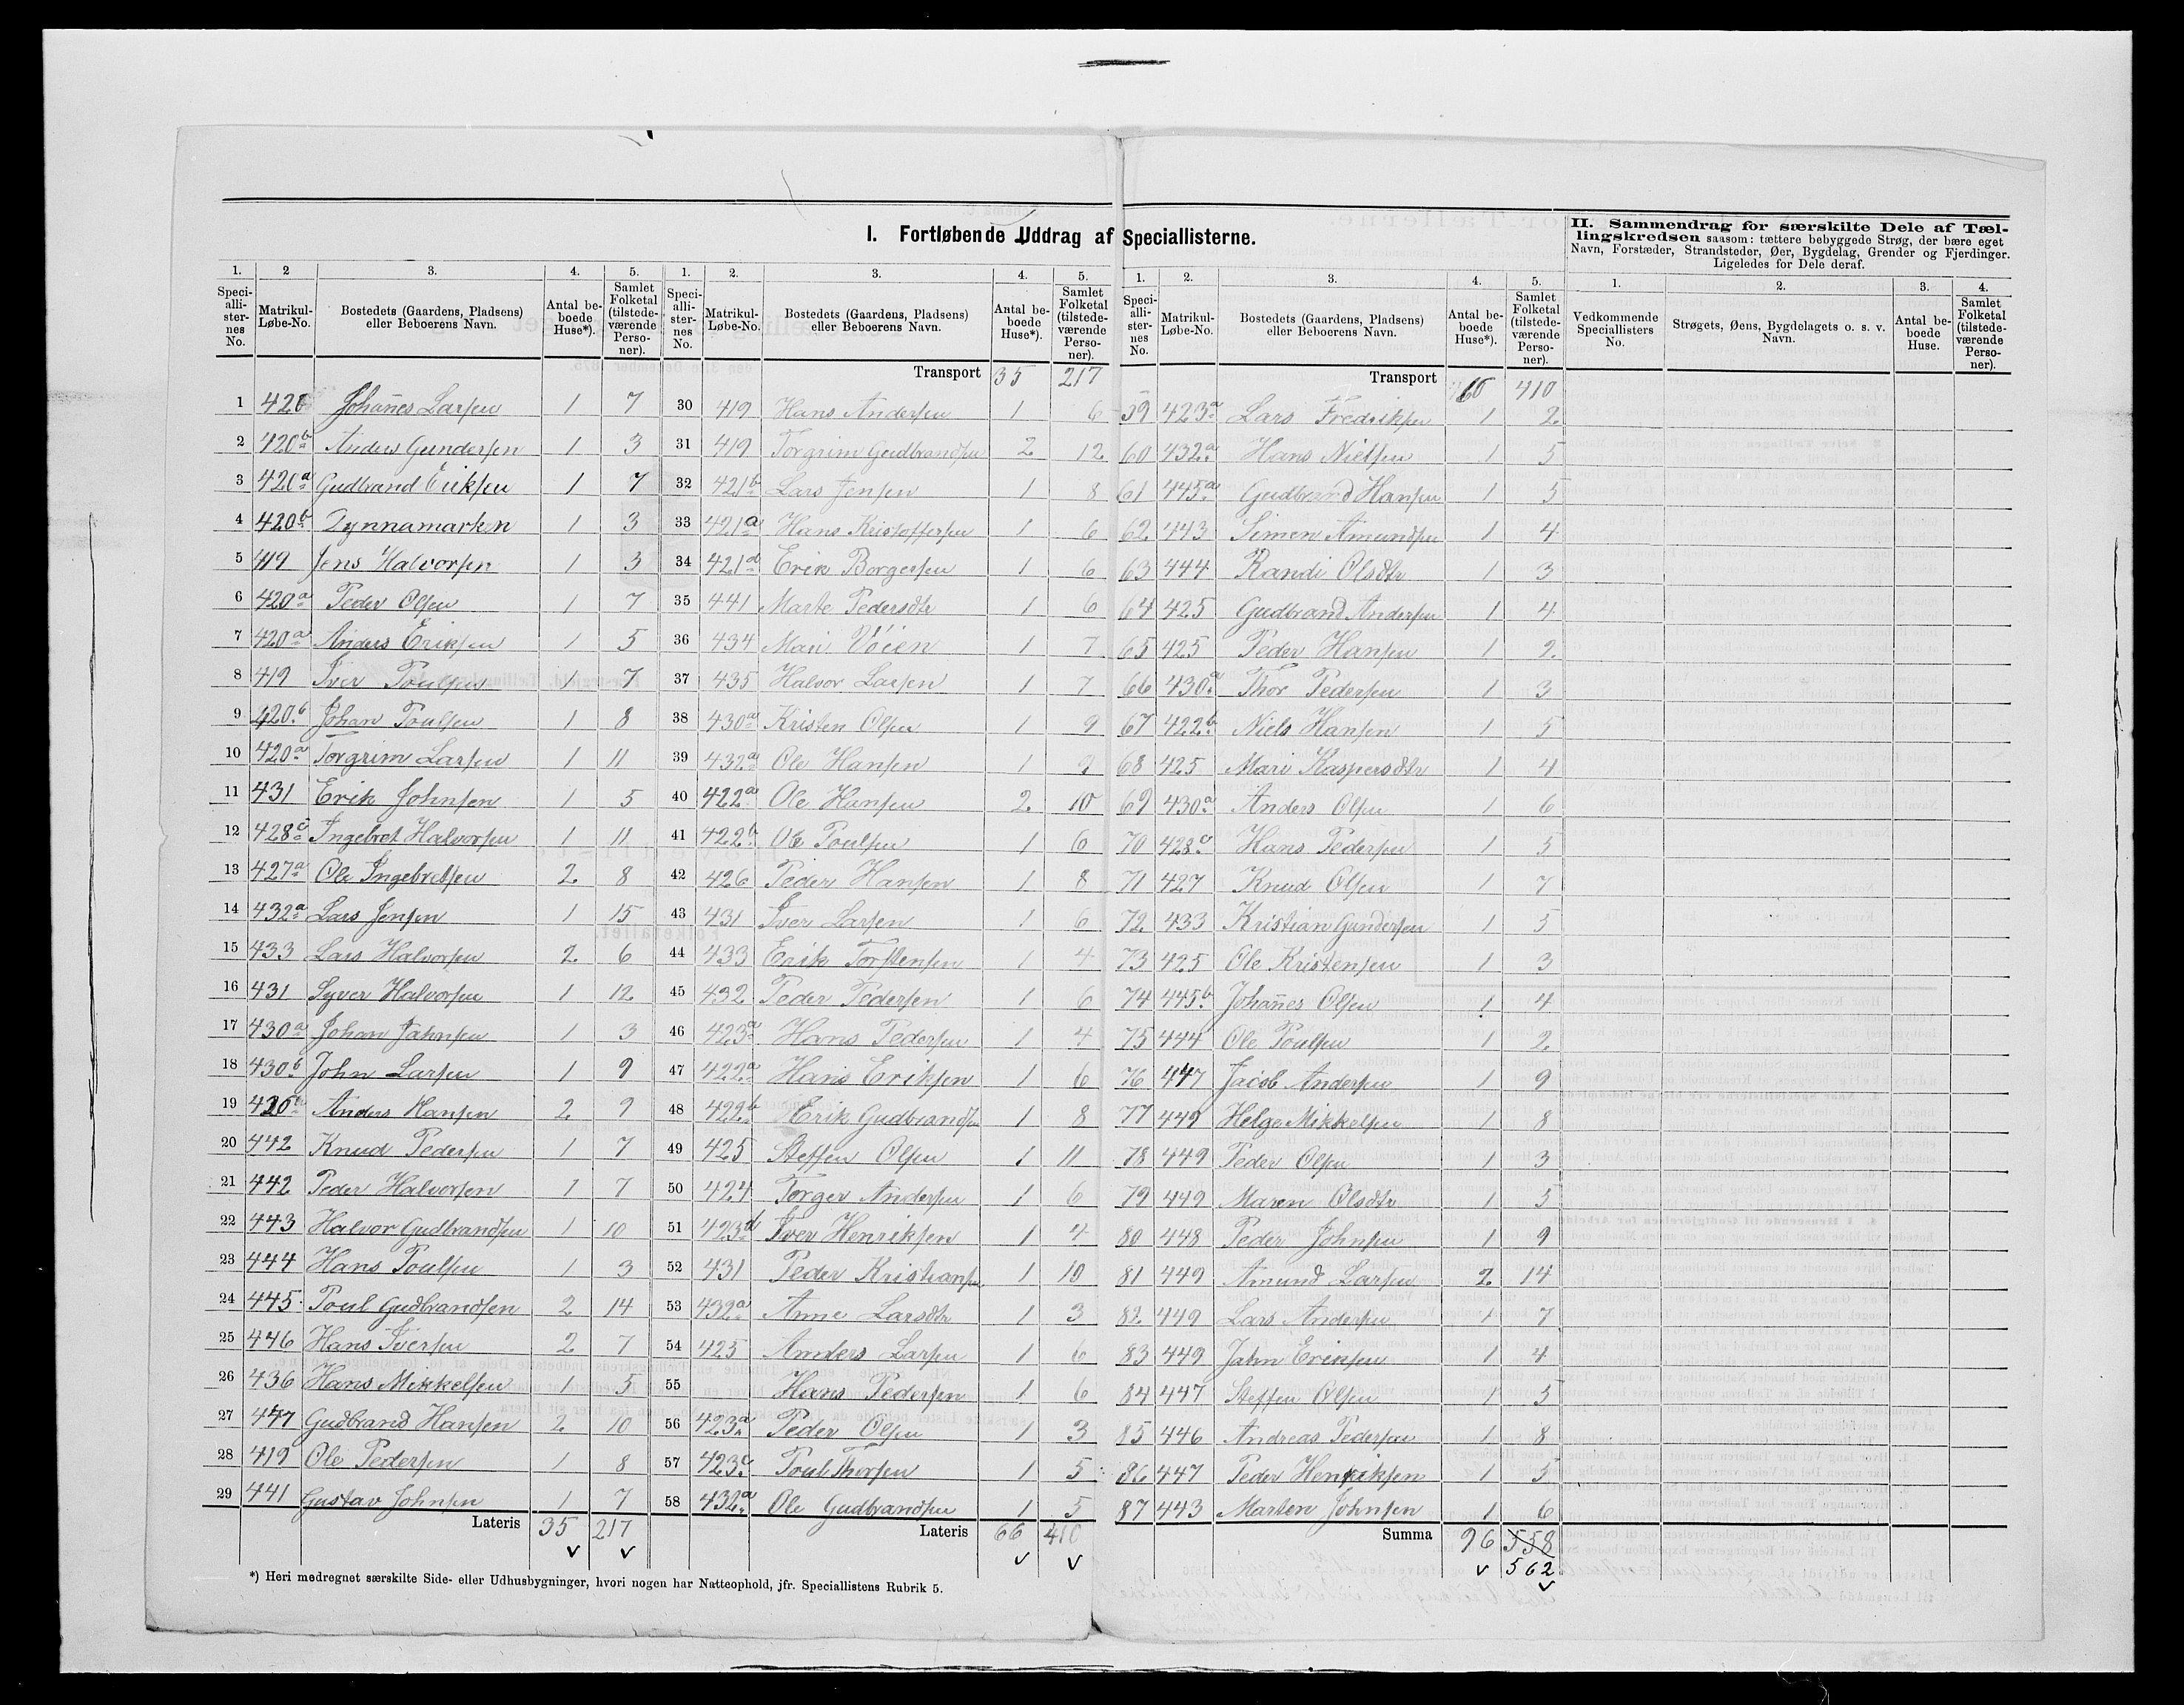 I. Fortløbende Uddrag af Speciallisterne.
II. Sammendrag for særskilte Dele af Tællingskredsen saasom: tættere bebyggede Strøg, der bære eget Navn, Forstæder, Strandsteder, Øer, Bygdelag, Grender og Fjerdinger. Ligeledes for Dele deraf.
1. 2 3. 4. 5.
Speciallisternes No. Matrikul-Løbe-No. Bostedets (Gaardens, Pladsens) eller Beboerens Navn. Antal beboede Huse*). Samlet Folketal (tilstedeværende Personer).
1 420 Johañes Larsen 1 7
2 420 b Anders Gundersen 1 3
3 420 a Gudbrand Eriksen 1 7
4 420 b Tynnamarken 1 3
5 419 Jens Halvorsen 1 3
6 420 a Peder Olsen 1 7
7 420 a Anders Eriksen 1 5
8 419 Iver Poulsen 1 7
9 420 b Johan Poulsen 1 8
10 420 a Torgrim Larsen 1 11
11 431 Erik Johnsen 1 5
12 428 c Ingebret Halvorsen 1 11
13 427 a Ole Ingebretsen 2 8
14 432 a Lars Jensen 1 15
15 433 Lars Halvorsen 2 6
16 431 Syver Halvorsen 1 12
17 430 a Johan Jahnsen 1 3
18 430 b John Larsen 1 9
19 420 Anders Hansen 2 9
20 442 Knud Pedersen 1 7
21 442 Peder Halvorsen 1 7
22 443 Halvor Gudbrandsen 1 10
23 444 Hans Poulsen 1 3
24 445 Poul Gudbrandsen 2 14
25 446 Hans Iversen 2 7
26 436 Hans Mikkelsen 1 5
27 447 Gudbrand Hansen 2 10
28 419 Ole Pedersen 1 8
29 441 Gustav Johnsen 1 7
Lateris 35 217
1. 2. 3. 4. 5.
Speciallisternes No. Matrikul-Løbe-No. Bostedets (Gaardens, Pladsens) eller Beboerens Navn. Antal beboede Huse*). Samlet Folketal (tilstedeværende Personer).
Transport 35 217
30 419 Hans Andersen 1 6
31 419 Torgrim Gudbrandsen 2 12
32 421 b Lars Jensen 1 8
33 421 a Hans Kristoffersen 1 6
34 421 d Erik Borgersen 1 6
35 441 Marte Pedersdtr 1 6
36 434 Mari Vöien 1 7
37 435 Halvor Larsen 1 7
38 430 a Kristen Olsen 1 9
39 432 a Ole Hansen 1 2
40 422 a Ole Hansen 2 10
41 422 b Ole Poulsen 1 6
42 426 Peder Hansen 1 8
43 431 Iver Larsen 1 6
44 433 Erik Torstensen 1 4
45 432 Peder Pedersen 1 6
46 423 a Hans Pedersen 1 4
47 422 a Hans Eriksen 1 6
48 422 b Erik Gudbrandsen 1 8
49 425 Steffen Olsen 1 11
50 424 Torger Andersen 1 6
51 423 d Iver Henriksen 1 4
52 431 Peder Kristiansen 1 10
53 432 a Anne Larsdtr 1 3
54 425 Anders Larsen 1 6
55 Hans Pedersen 1 6
56 423 a Peder Olsen 1 3
57 423 c Poul Thorsen 1 5
58 432 a Ole Gudbrandsen 1 5
Lateris 66 410
1. 2. 3. 4. 5.
Speciallisternes No. Matrikul-Løbe-No. Bostedets (Gaardens, Pladsens) eller Beboerens Navn. Antal beboede Huse*). Samlet Folketal (tilstedeværende Personer).
Transport 66 410
59 423 a Lars Fredriksen 1 2
60 432 a Hans Nielsen 1 5
61 445 a Gudbrand Hansen 1 5
62 443 Simen Amundsen 1 4
63 444 Randi Olsdtr 1 3
64 425 Gudbrand Andersen 1 4
65 425 Peder Hansen 1 2
66 430 a Thor Pedersen 1 3
67 422 b Niels Hansen 1 5
68 425 Mari Kaspersdtr 1 4
69 430 a Anders Olsen 1 6
70 428 c Hans Pedersen 1 5
71 427 Knud Olsen 1 7
72 433 Kristian Gundersen 1 5
73 425 Ole Kristensen 1 3
74 445 b Johañes Olsen 1 4
75 444 Ole Poulsen 1 2
76 447 Jacob Andersen 1 9
77 449 Helge Mikkelsen 1 8
78 449 Peder Olsen 1 3
79 449 Maren Olsdtr 1 5
80 448 Peder Johnsen 1 9
81 449 Amund Larsen 2 14
82 449 Lars Andersen 1 7
83 449 Jahn Eriksen 1 4
84 447 Steffen Olsen 1 5
85 446 Andreas Pedersen 1 8
86 447 Peder Henriksen 1 5
87 443 Marten Johnsen 1 6
Summa 96 558
562
1. 2. 3. 4.
Vedkommende Speciallisters No. Strøgets, Øens, Bygdelagets o. s. v. Navn. Antal beboede Huse. Samlet Folketal (tilstedeværende Personer).
*) Heri medregnet særskilte Side- eller Udhusbygninger, hvori nogen har Natteophold, jfr. Speciallistens Rubrik 5.